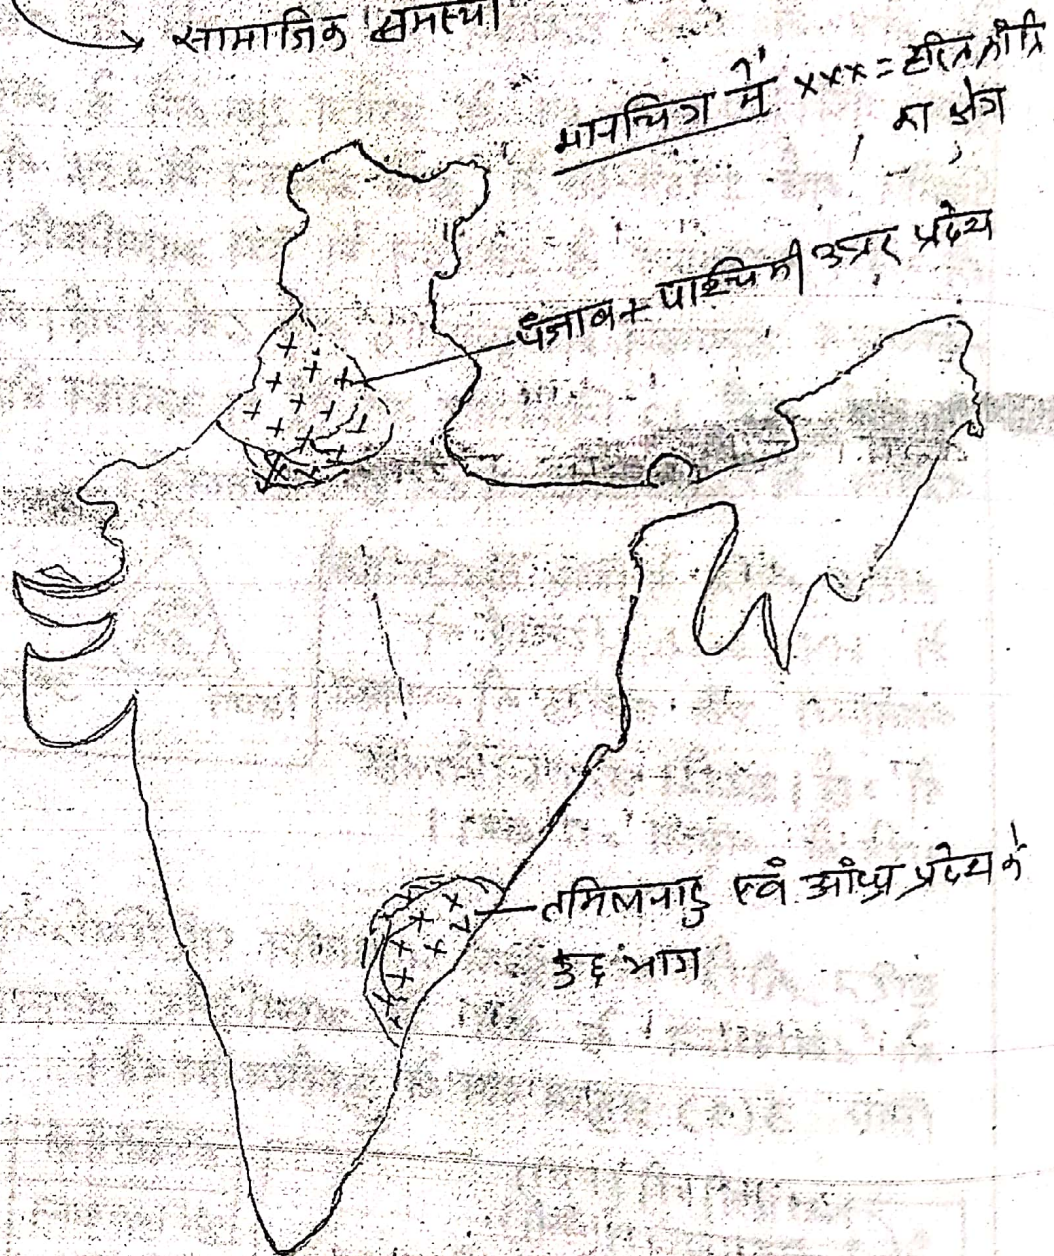 सामाजिक समस्या
मानचित्र में xxx = हरित क्रांति
का क्षेत्र
पंजाब + पश्चिमी उत्तर प्रदेश
तमिलनाडु एवं आंध्र प्रदेश के
कुछ भाग